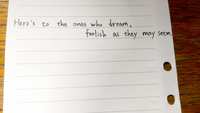 Here's to the ones who dream,
foolish as they may seem.